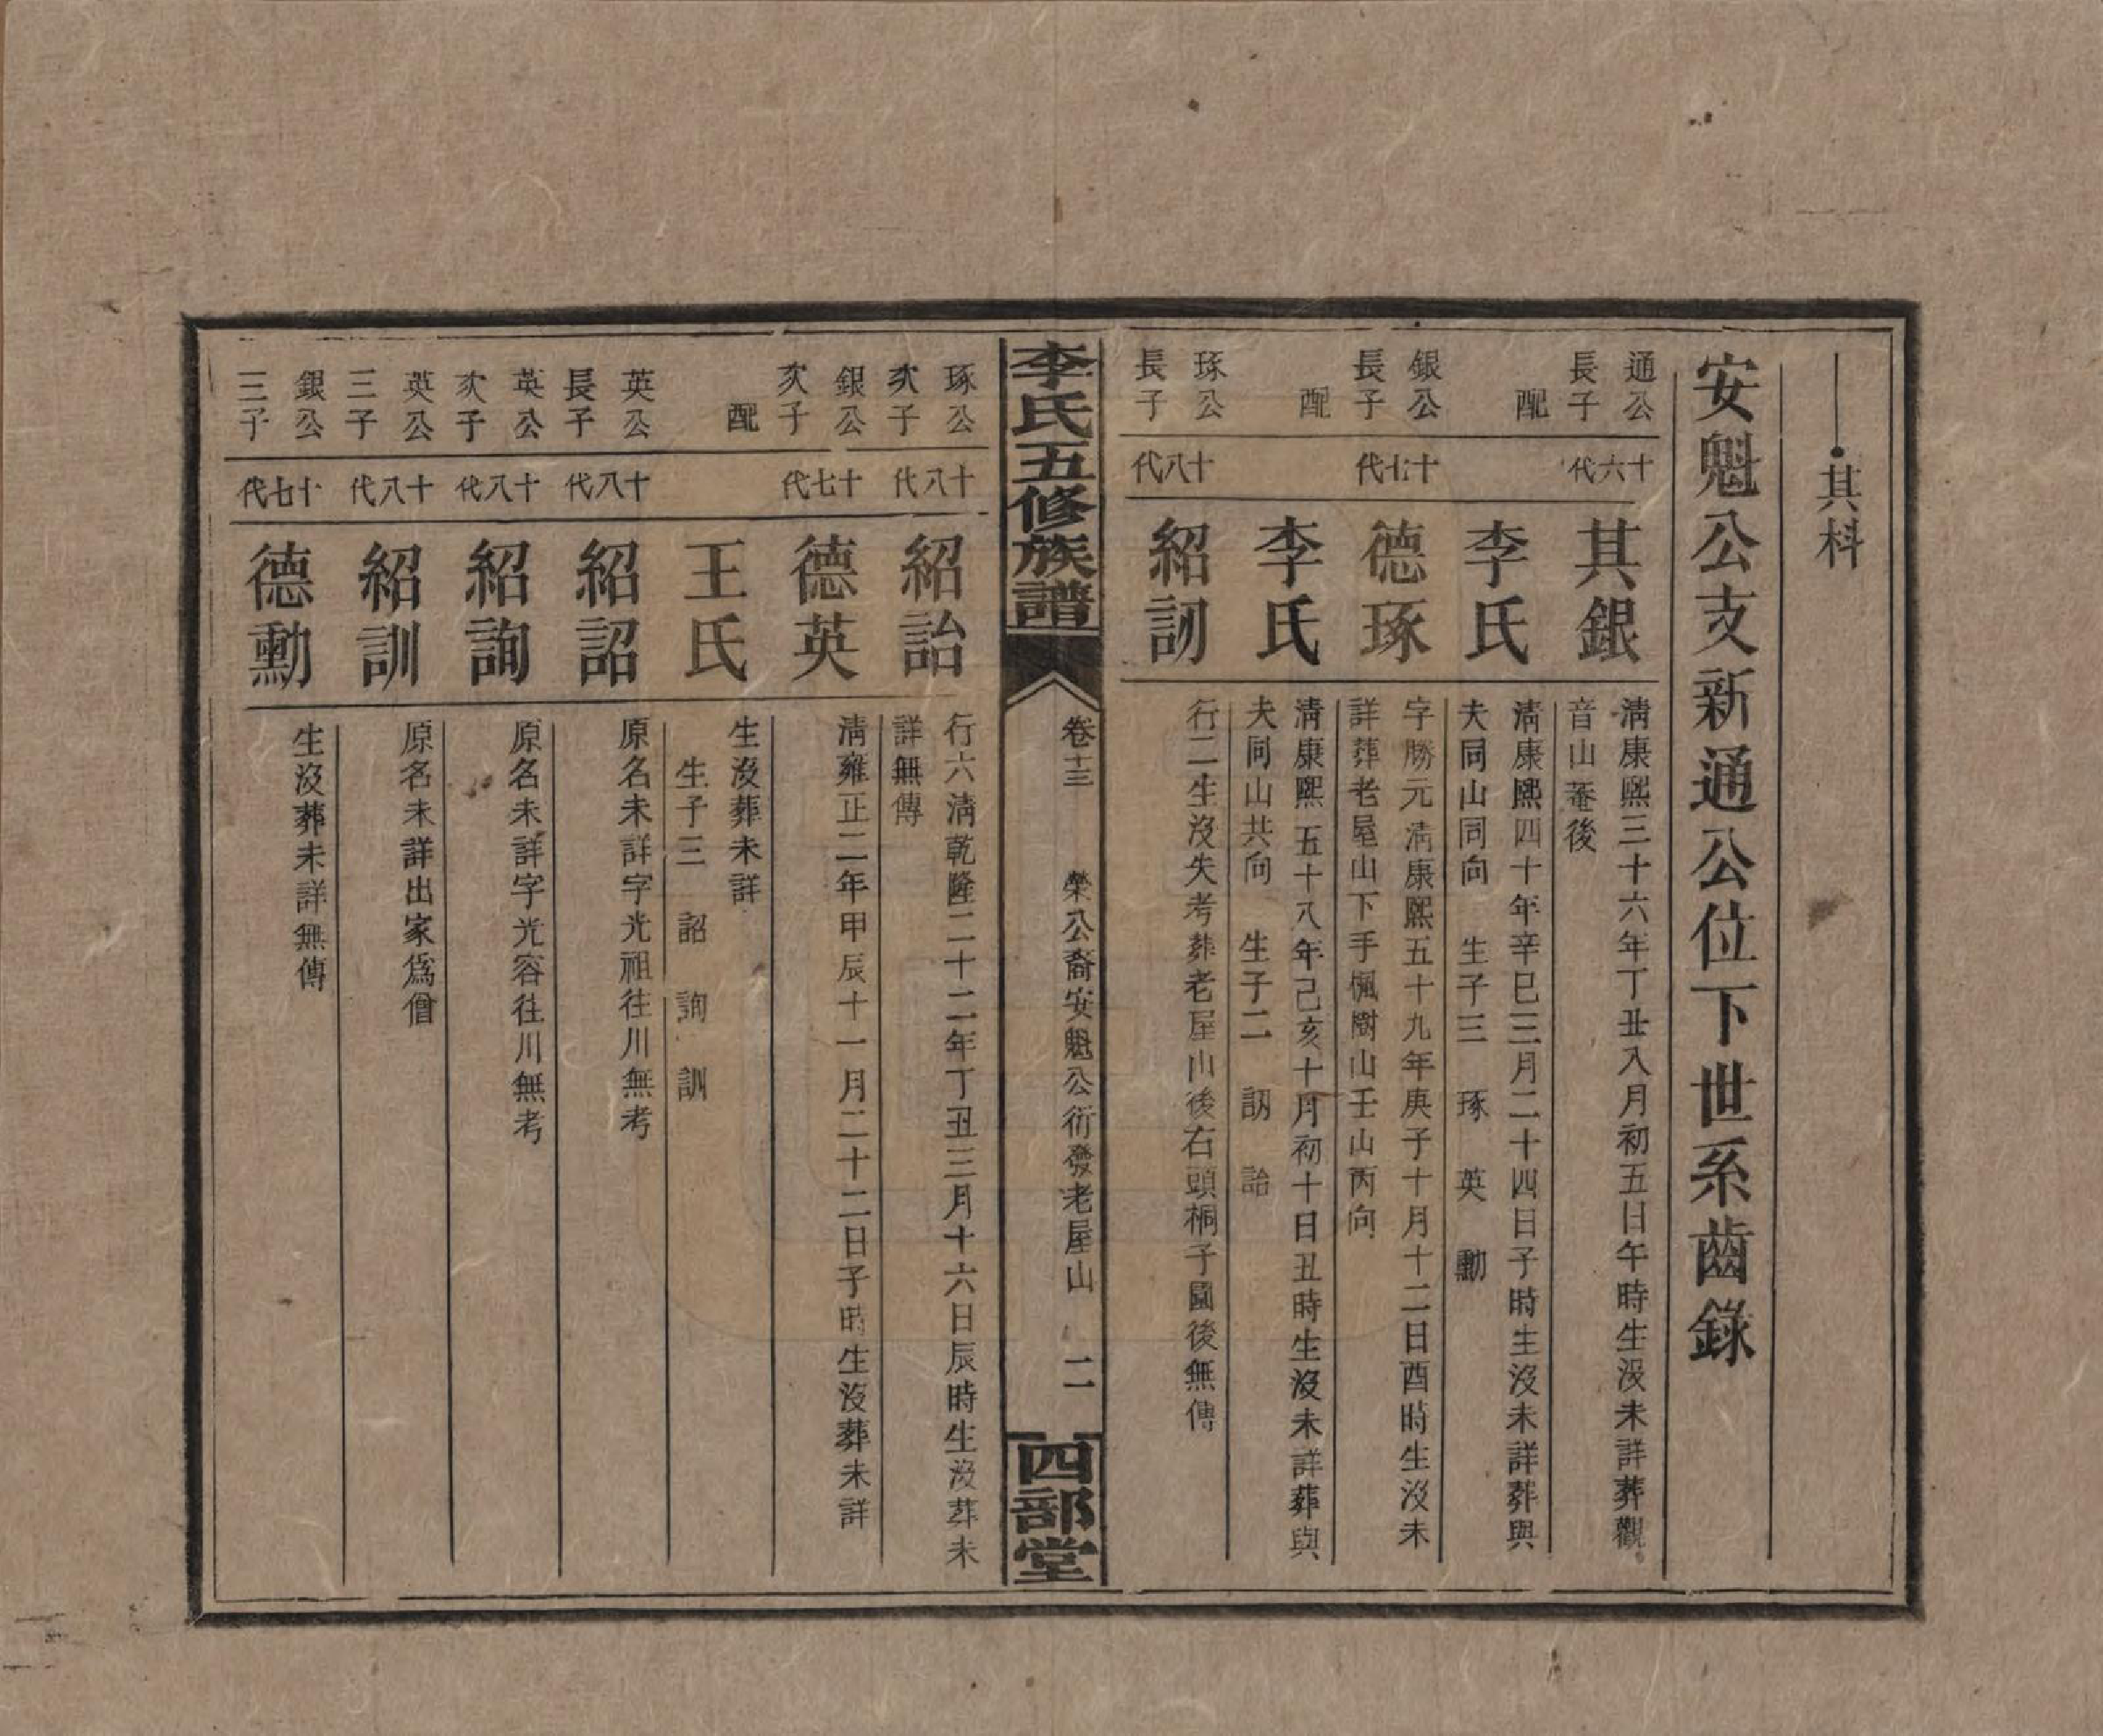 其科
安魁公支新通公位下世系齒錄
通公
長子
十六代
其銀
清康熙三十六年丁丑八月初五日午時生沒未詳葬觀
音山菴後
配
李氏
清康熙四十年辛巳三月二十四日子時生沒未詳葬與
夫同山同向 生子三 琢 英 勳
銀公
長子
十七代
德琢
字勝元清康熙五十九年庚子十月十二日酉時生沒未
詳葬老屋山下手楓樹山壬山丙向
配
李氏
清康熙五十八年己亥十月初十日丑時生沒未詳葬與
夫同山共向 生子二 訒 詒
琢公
長子
十八代
紹訒
行二生沒失考葬老屋山後右頭桐子園後無傳
李氏五修族譜
卷十三
榮公裔安魁公衍發老屋山
二
四部堂
琢公
次子
十八代
紹詒
行六清乾隆二十二年丁丑三月十六日辰時生沒葬未
詳無傳
銀公
次子
十七代
德英
清雍正二年甲辰十一月二十二日子時生沒葬未詳
配
王氏
生沒葬未詳
生子三 詔 詢 訓
英公
長子
十八代
紹詔
原名未詳字光祖往川無考
英公
次子
十八代
紹詢
原名未詳字光容往川無考
英公
三子
十八代
紹訓
原名未詳出家為僧
銀公
三子
十七代
德勳
生沒葬未詳無傳